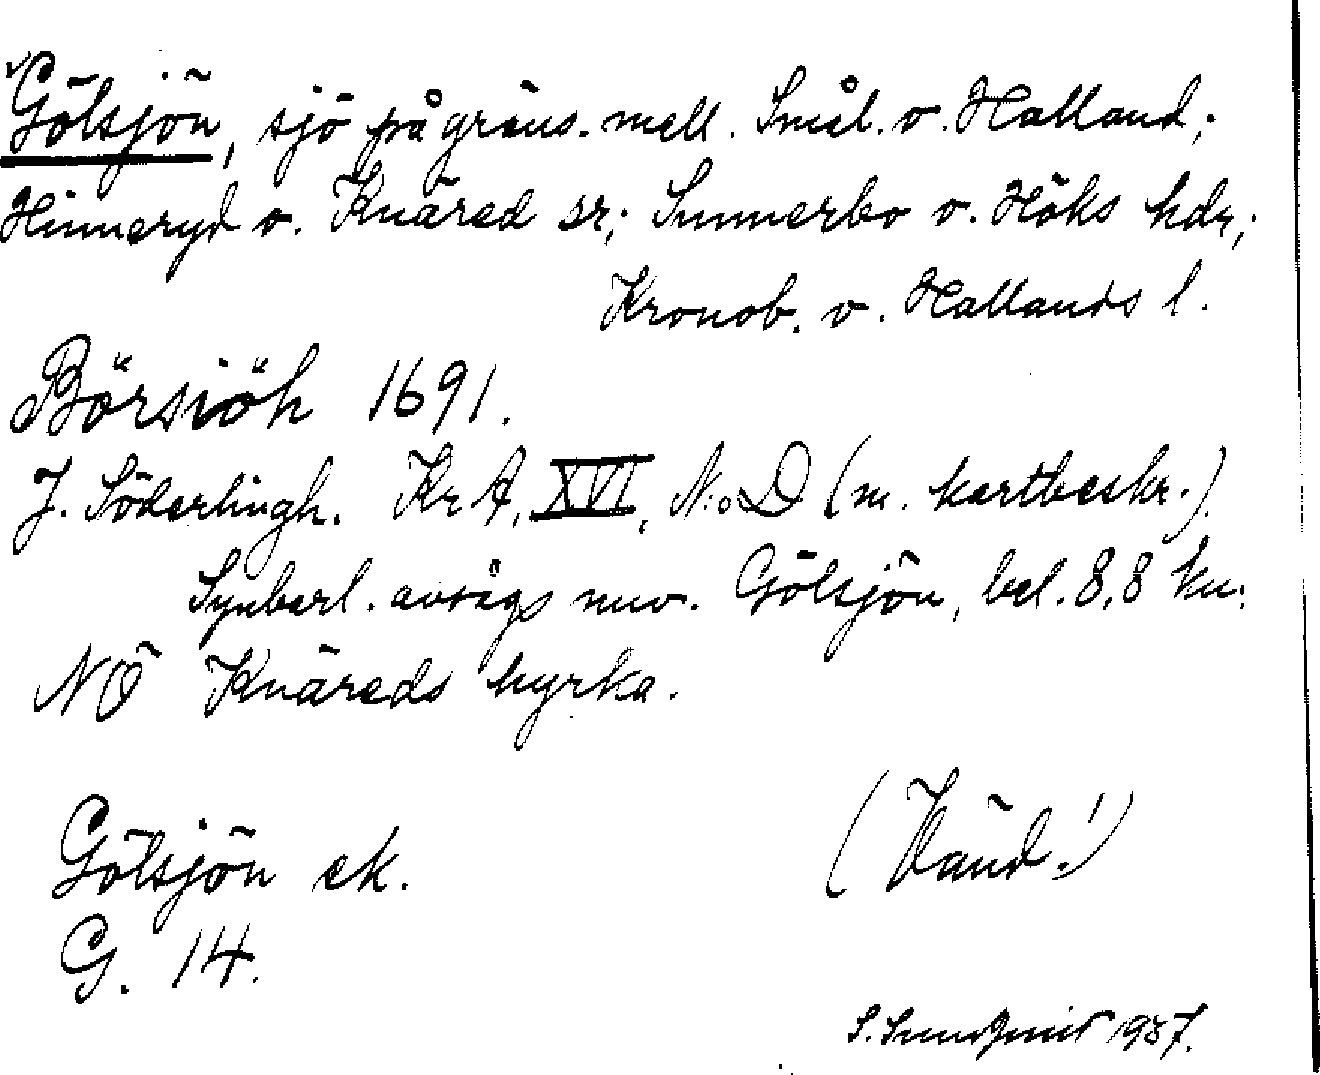 Gölsjön, sjö på gräns. mell. Smål. o. Halland;
Hinneryd o. Knäred sr; Sunnerbo o. Höks hdr;
Kronob. o. Hallands l.
Börsiöh 1691.
J. Söderlingh. KrA, XVI, N:o D (m. kartbeskr.).
Synbarl. avsågs nuv. Gölsjön, bel. 8,8 km.
NÖ Knäreds kyrka.
Gölsjön ek.
(Vänd!)
G. 14.
S. Sundqvist 1937.